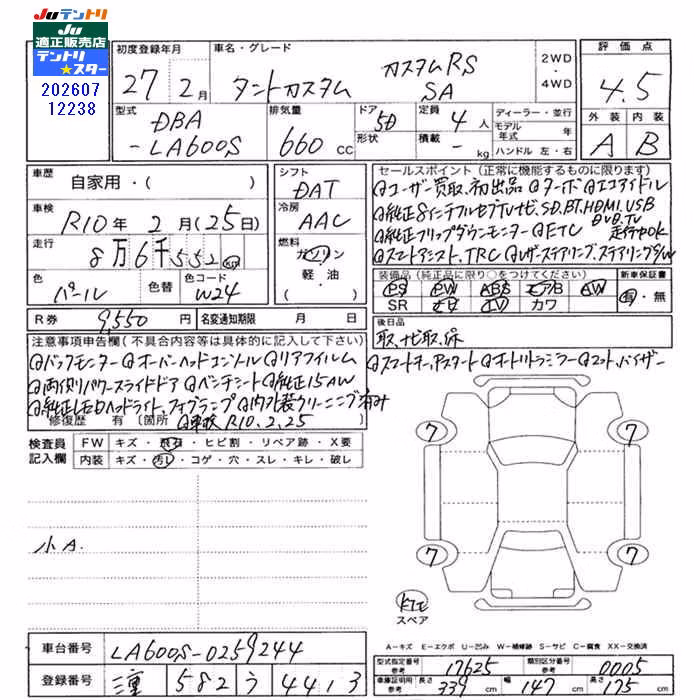 Juテントリ
Ju
適正販売店
テントリ
★スター
202607
12238
初度登録年月
27年2月
車名・グレード
タントカスタム カスタムRS SA
2WD
・
4WD
評価点
4.5
外装 内装
A B
型式
DBA
-LA600S
排気量
660 CC
ドア
形状
5D
定員 4 人
積載 - kg
ディーラー・並行
モデル年式 年
ハンドル 左・右
車歴
自家用・( )
シフト
DAT
車検
R10年2月(25日)
冷房
AAC
走行
8万6千552km
燃料
ガソリン
軽・油
( )
色
パール
色替
色コード
W24
R券
9,550円
名変通知期限 月 日
セールスポイント(正常に機能するものに限ります)
◎ユーザー買取、初出品 ◎ターボ ◎エコアイドル
◎純正8インチフルセグTVナビ、SD,BT,HDMI,USB
DVD,TV
◎純正フリップダウンモニター ◎ETC 走行中OK
◎スマートアシスト、TRC ◎レザーステアリング、ステアリングSW
装備品(純正品に限り○をつけてください)
新車保証書
PS PW ABS エアB AW
SR ナビ TV カワ
有・無
後日品
取、ナビ取、保
注意事項申告欄(不具合内容等は具体的に記入して下さい)
◎バックモニター ◎オーバーヘッドコンソール ◎リアフィルム ◎スマートキー、Pスタート ◎オートリトラミラー ◎コット、バイザー
◎両側パワースライドドア ◎ベンチシート ◎純正15AW
◎純正LEDヘッドライト、フォグランプ ◎内外装クリーニング済み
修復歴 有(箇所 ◎車検R10.2.25)
検査員
記入欄
FW キズ・飛石・ヒビ割・リペア跡・X要
内装 キズ・汚レ・コゲ・穴・スレ・キレ・破レ
小A.
7
7
7
7
スペア
A-キズ E-エクボ U-凹み W-補修跡 S-サビ C-腐食 XX-交換済
車台番号
LA600S-0259244
登録番号
三重 582 う 4413
型式指定番号
参考
17625
類別区分番号
参考
0005
車庫証明用
参考
長さ 339 cm 幅 147 cm 高さ 175 cm